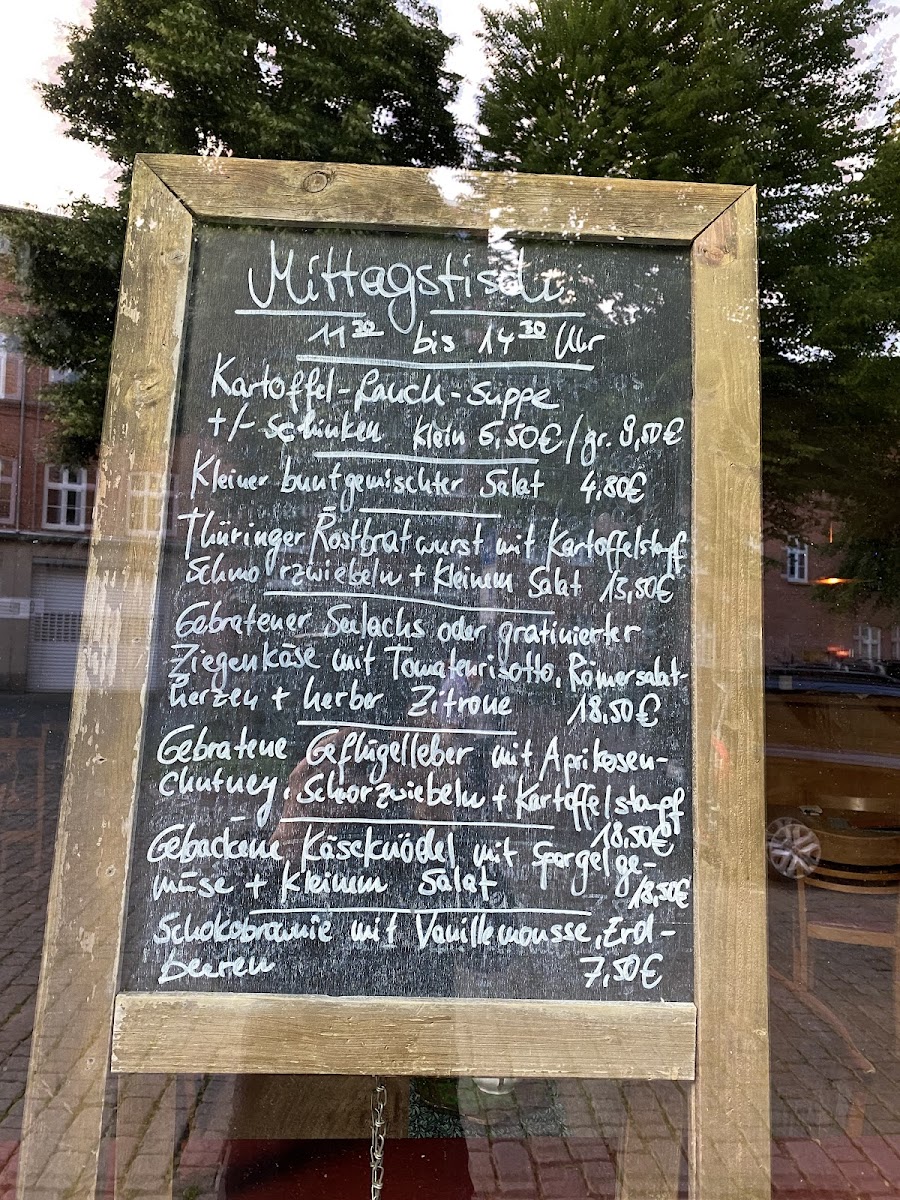 Mittagstisch
11³⁰ bis 14³⁰ Uhr
Kartoffel-Lauch-Suppe
+/- Schinken klein 6,50€/gr. 9,50€
Kleiner buntgemischter Salat 4,80€
Thüringer Rostbratwurst mit Kartoffelstampf
Schmorzwiebeln + kleinem Salat 13,50€
Gebratener Seelachs oder gratinierter
Ziegenkäse mit Tomatenrisotto, Römersalat-
herzen + herber Zitrone 18,50€
Gebratene Geflügelleber mit Aprikosen-
Chutney, Schmorzwiebeln + Kartoffelstampf
18,50€
Gebackene Käseknödel mit Spargelge-
müse + kleinem Salat 18,50€
Schokobrownie mit Vanillemousse, Erd-
beeren 7,50€